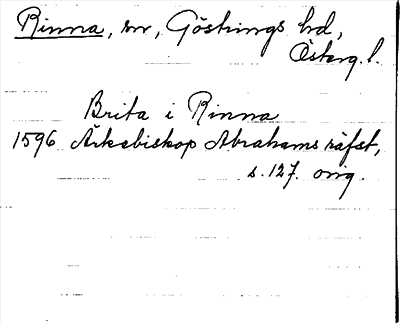 Rinna, sn, Göstrings hd,
Österg. l.
Brita i Rinna
1596 Ärkebiskop Abrahams räfst,
s. 127. orig.